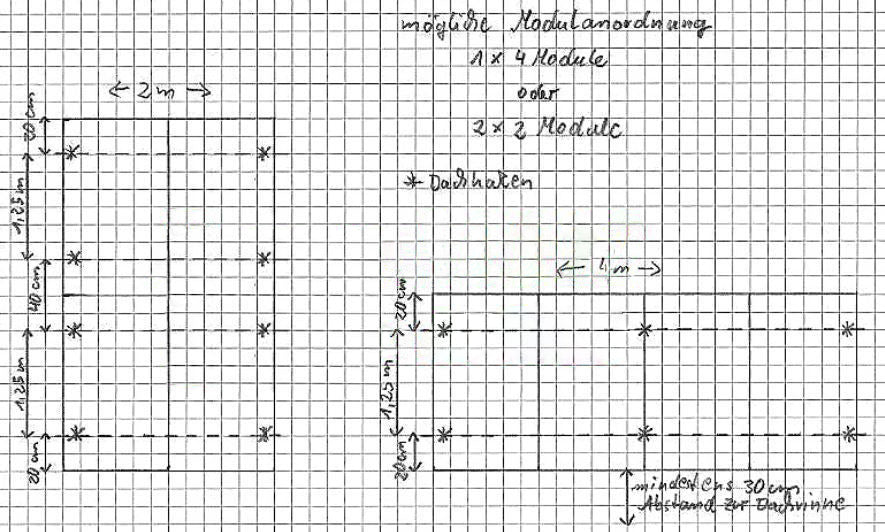 mögliche Modulanordnung
1 x 4 Module
oder
2 x 2 Module
* Dachhaken
← 2m →
20cm
1,25m
40cm
1,25m
20cm
← 4m →
20cm
1,25m
20cm
mindestens 30cm
Abstand zur Dachrinne